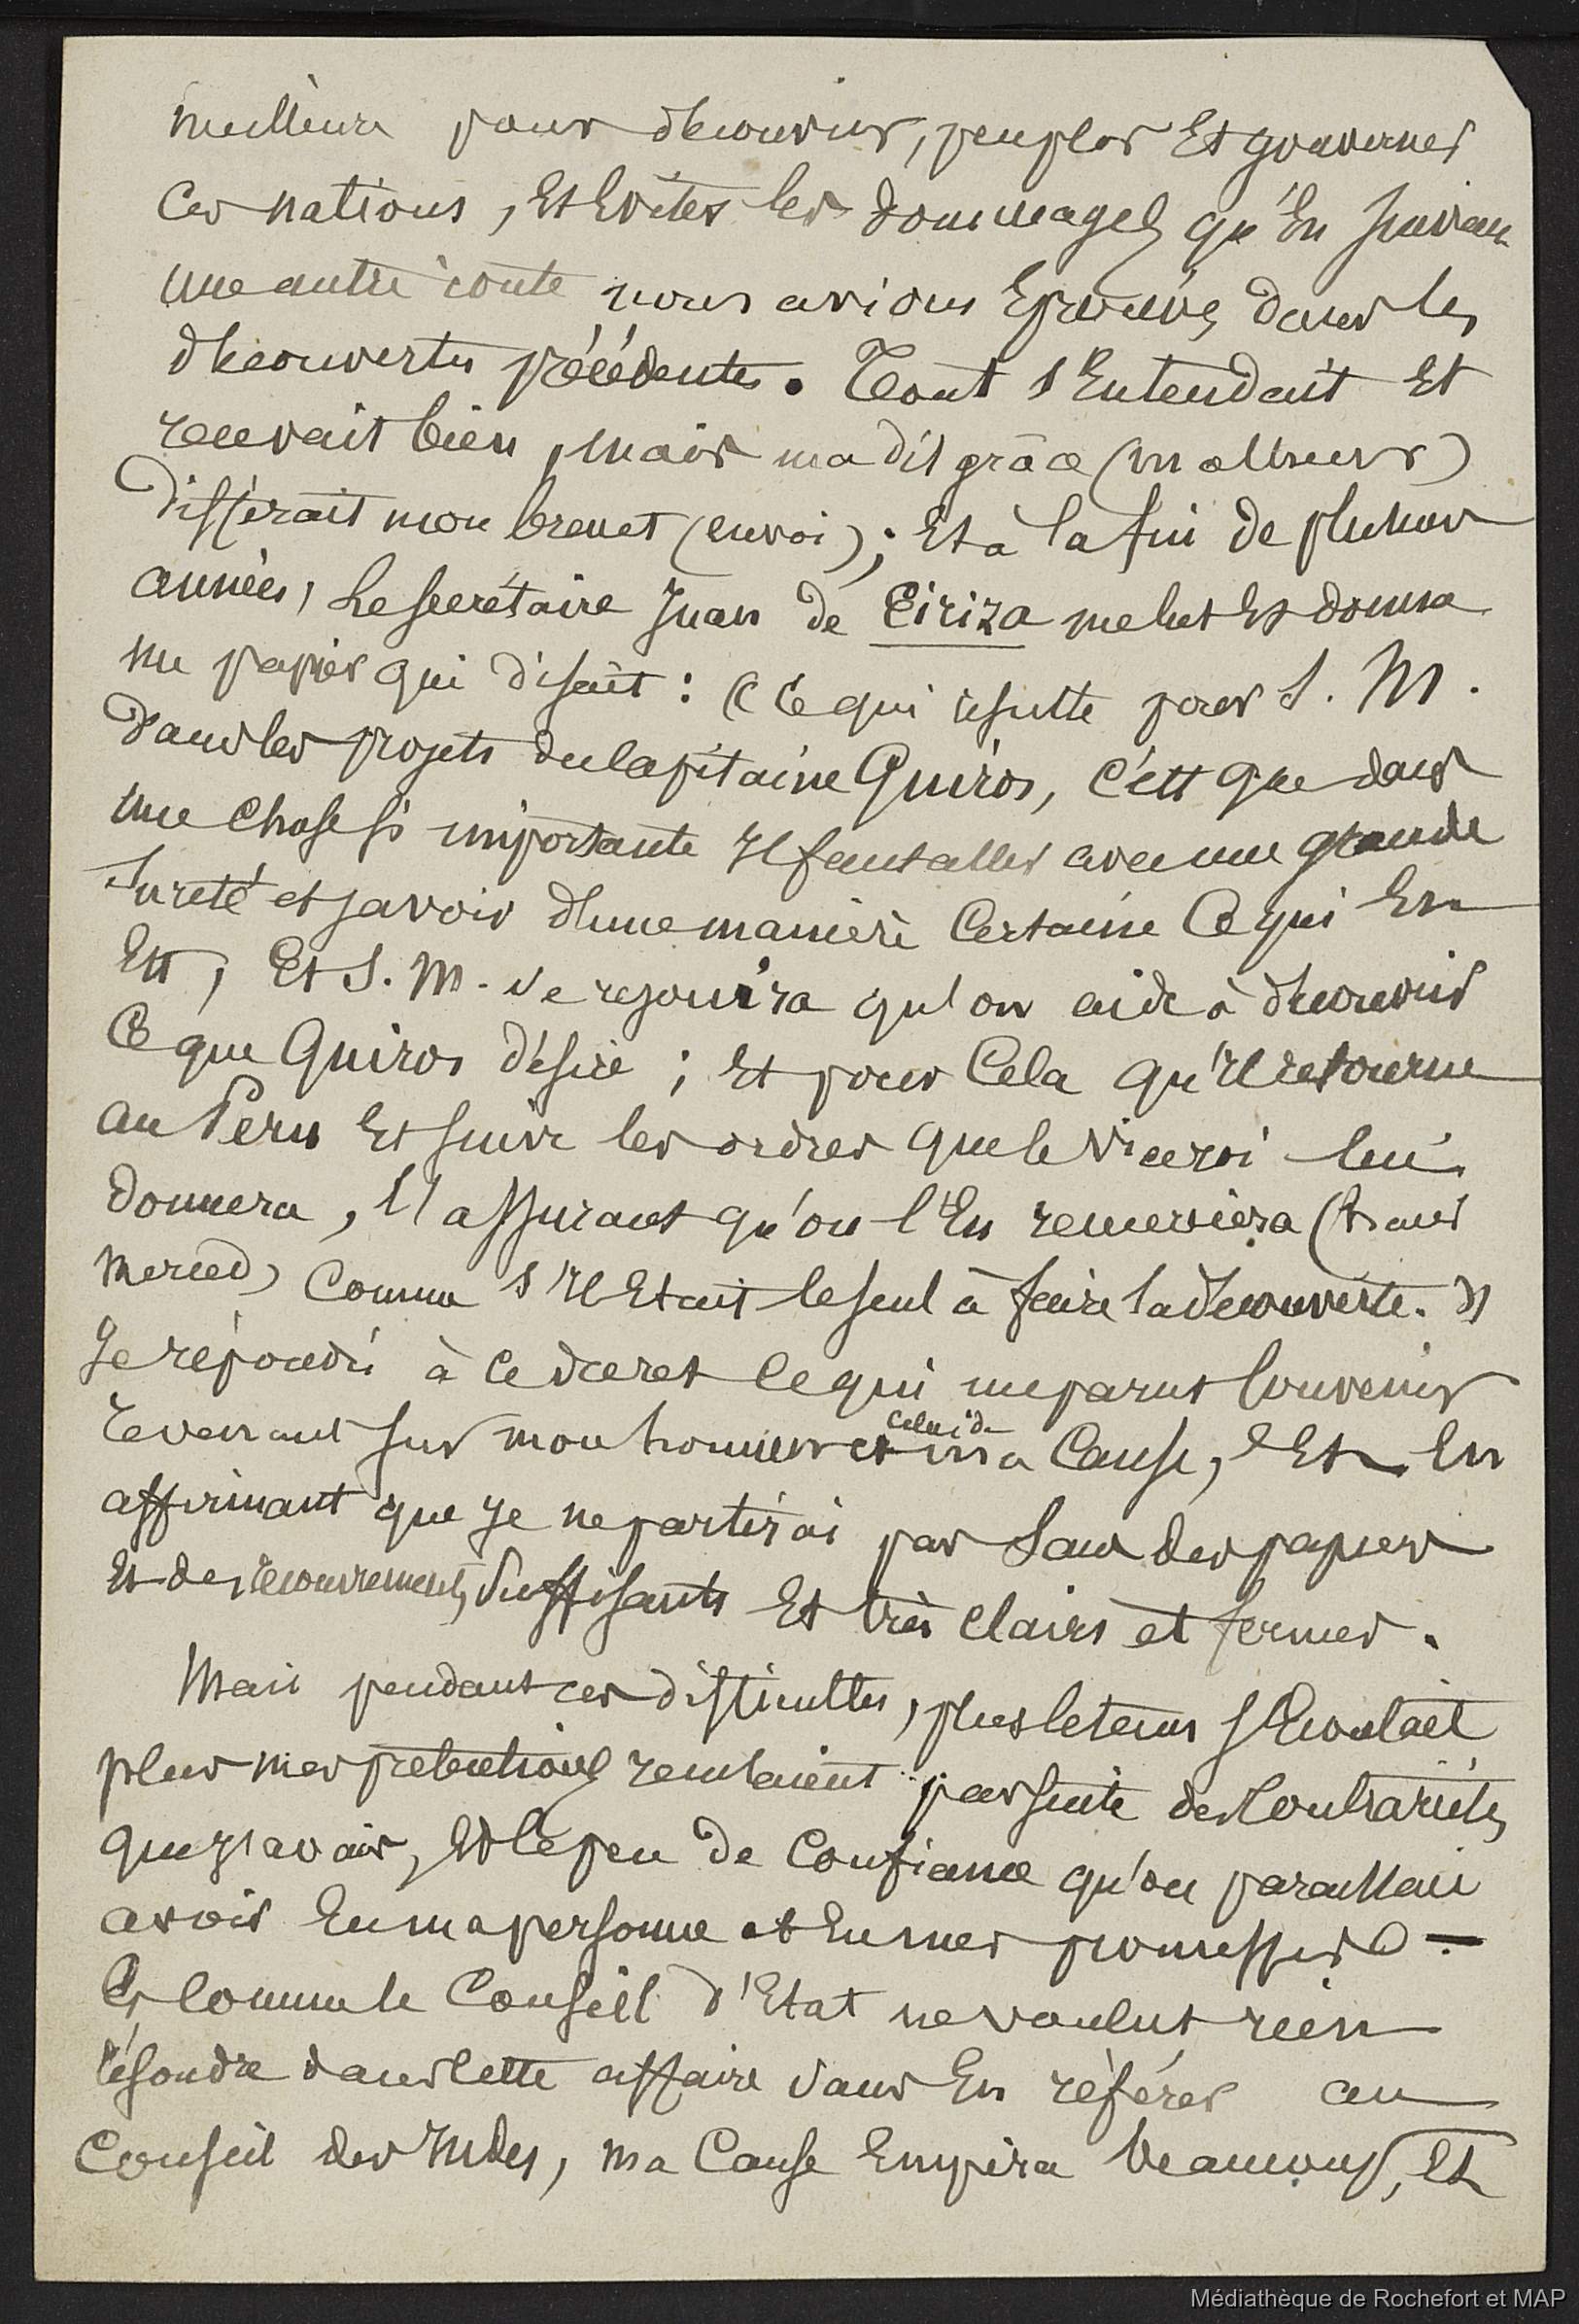 meilleure pour découvrir, peupler Et gouverner
Ces nations, Et Eviter les dommages qu'En suivant
une autre route nous avions Eprouvés dans les
découvertes précédentes. Tout s'Entendait Et
recevait bien, mais ma disgrâce (malheur)
différait mon brevet (envoi); Et à la fin de plusieurs
années, Le secrétaire Juan de Ciriza me lut Et donna
un papier qui disait: « Ce qui résulte pour S. M.
dans les projets du Capitaine Quiros, c'est que dans
une chose si importante Il faut aller avec une grande
sureté et savoir d'une manière Certaine Ce qui En
Est, Et S. M. se rejouira qu'on aide à découvrir
Ce que Quiros désire; Et pour Cela qu'Il retourne
au Perú Et suive les ordres que le Viceroi lui
donnera, l'assurant qu'on l'En remerciera (
merced) Comme s'Il Etait le seul à faire la découverte. »
Je répondis à ce décret ce qui me parut Convenir
revenant sur mon honneur et celui de ma Cause, Et En
affirmant que Je ne partirai pas sans des papiers
Et des recouvrements suffisants Et très clairs et fermes.
Mais pendant ces difficultés, plus le tems s'Ecoulait
plus mes prétentions reculaient par suite des Contrariétés
que J'avais, Et le peu de Confiance qu'on paraissait
avoir En ma personne et En mes promesses. -
Et Comme le Conseil d'Etat ne voulut rien
résoudre dans Cette affaire sans En référer au
Conseil des Indes, ma Cause Empira beaucoup, Et
Médiathèque de Rochefort et MAP